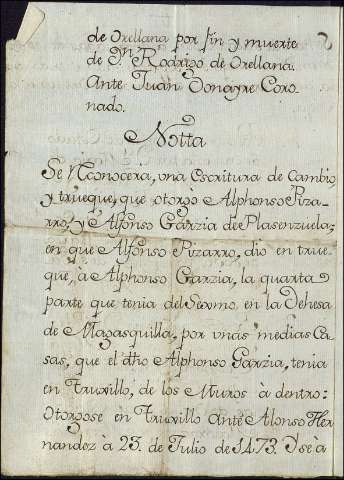 de Orellana por fin y muerte
de Dn. Rodrigo de Orellana.
Ante Juan Donayre Coro-
nado.
Notta
Se Rconocera, una Escritura de Cambio
y trueque, que otorgò Alphonso Piza-
rro, y Alfonso Garzia de Plasenzuela;
en que Alfonso Pizarro, dio en true-
que, à Alphonso Garzia, la quarta
parte que tenia del Sesmo en la Dehesa
de Magasquilla, por vnas medias Ca-
sas, que el dho Alphonso Garzia, tenia
en Truxillo, de los Muros à dentro:
Otorgose en Truxillo Ante Alonso Her-
nandez à 23. de Julio de 1473. Y se à